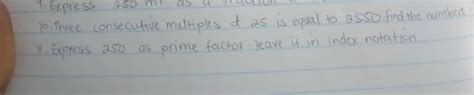 9. Express 250 ml as a fraction
10. Three consecutive multiples of 25 is equal to 2550. find the number.
11. Express 250 as prime factor leave it in index notation